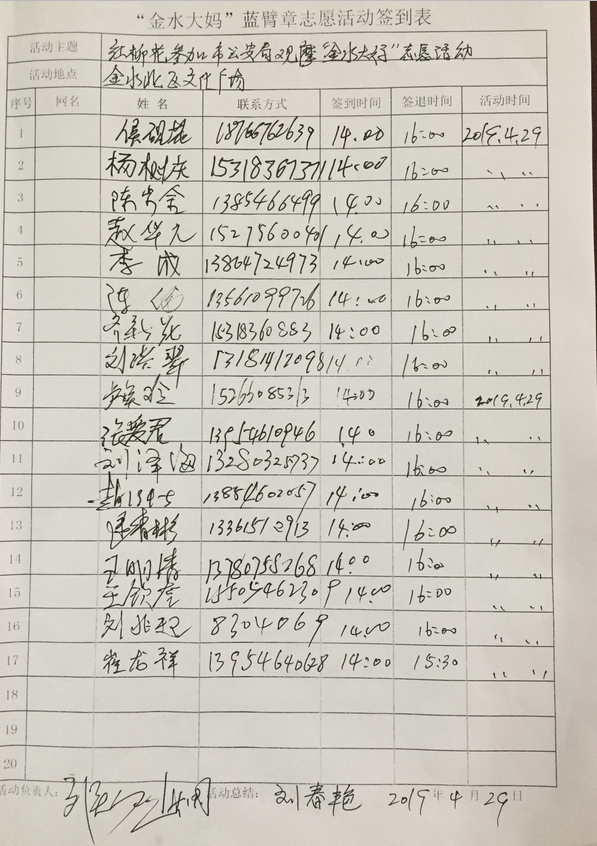 “金水大妈”蓝臂章志愿活动签到表
活动主题 红柳花参加市公安局观摩“金水大妈”志愿活动
活动地点 金水北区文化广场
序号 网名 姓 名 联系方式 签到时间 签退时间 活动时间
1 侯砚琨 18766762639 14.00 16:00 2019.4.29
2 杨树庆 15318367371 14:00 16:00 〃 〃
3 陈 1385466499 14.00 16:00 〃 〃
4 赵华元 15275600401 14.00 16:00 〃 〃
5 李成 13864724973 14:00 16:00 〃 〃
6 陈 13561099726 14:00 16:00 〃 〃
7 15318360883 14:00 16:00 〃 〃
8 刘洪翠 13181412098 14 16:00 〃 〃
9 15266085313 14:00 16:00 2019.4.29
10 张爱君 13954610946 14.0 16:00 〃 〃
11 刘泽海 13280325737 14:00 16:00 〃 〃
12 13854602057 14:00 16:00 〃 〃
13 13361512913 14:00 16:00 〃 〃
14 王明清 13780755268 14:00 16:00 〃 〃
15 王 15505462309 14:00 16:00 〃 〃
16 刘 8304069 14:00 16:00 〃 〃
17 程龙祥 13954640628 14:00 15:30 〃 〃
18
19
20
活动负责人: 活动总结: 刘春艳 2019年4月29日